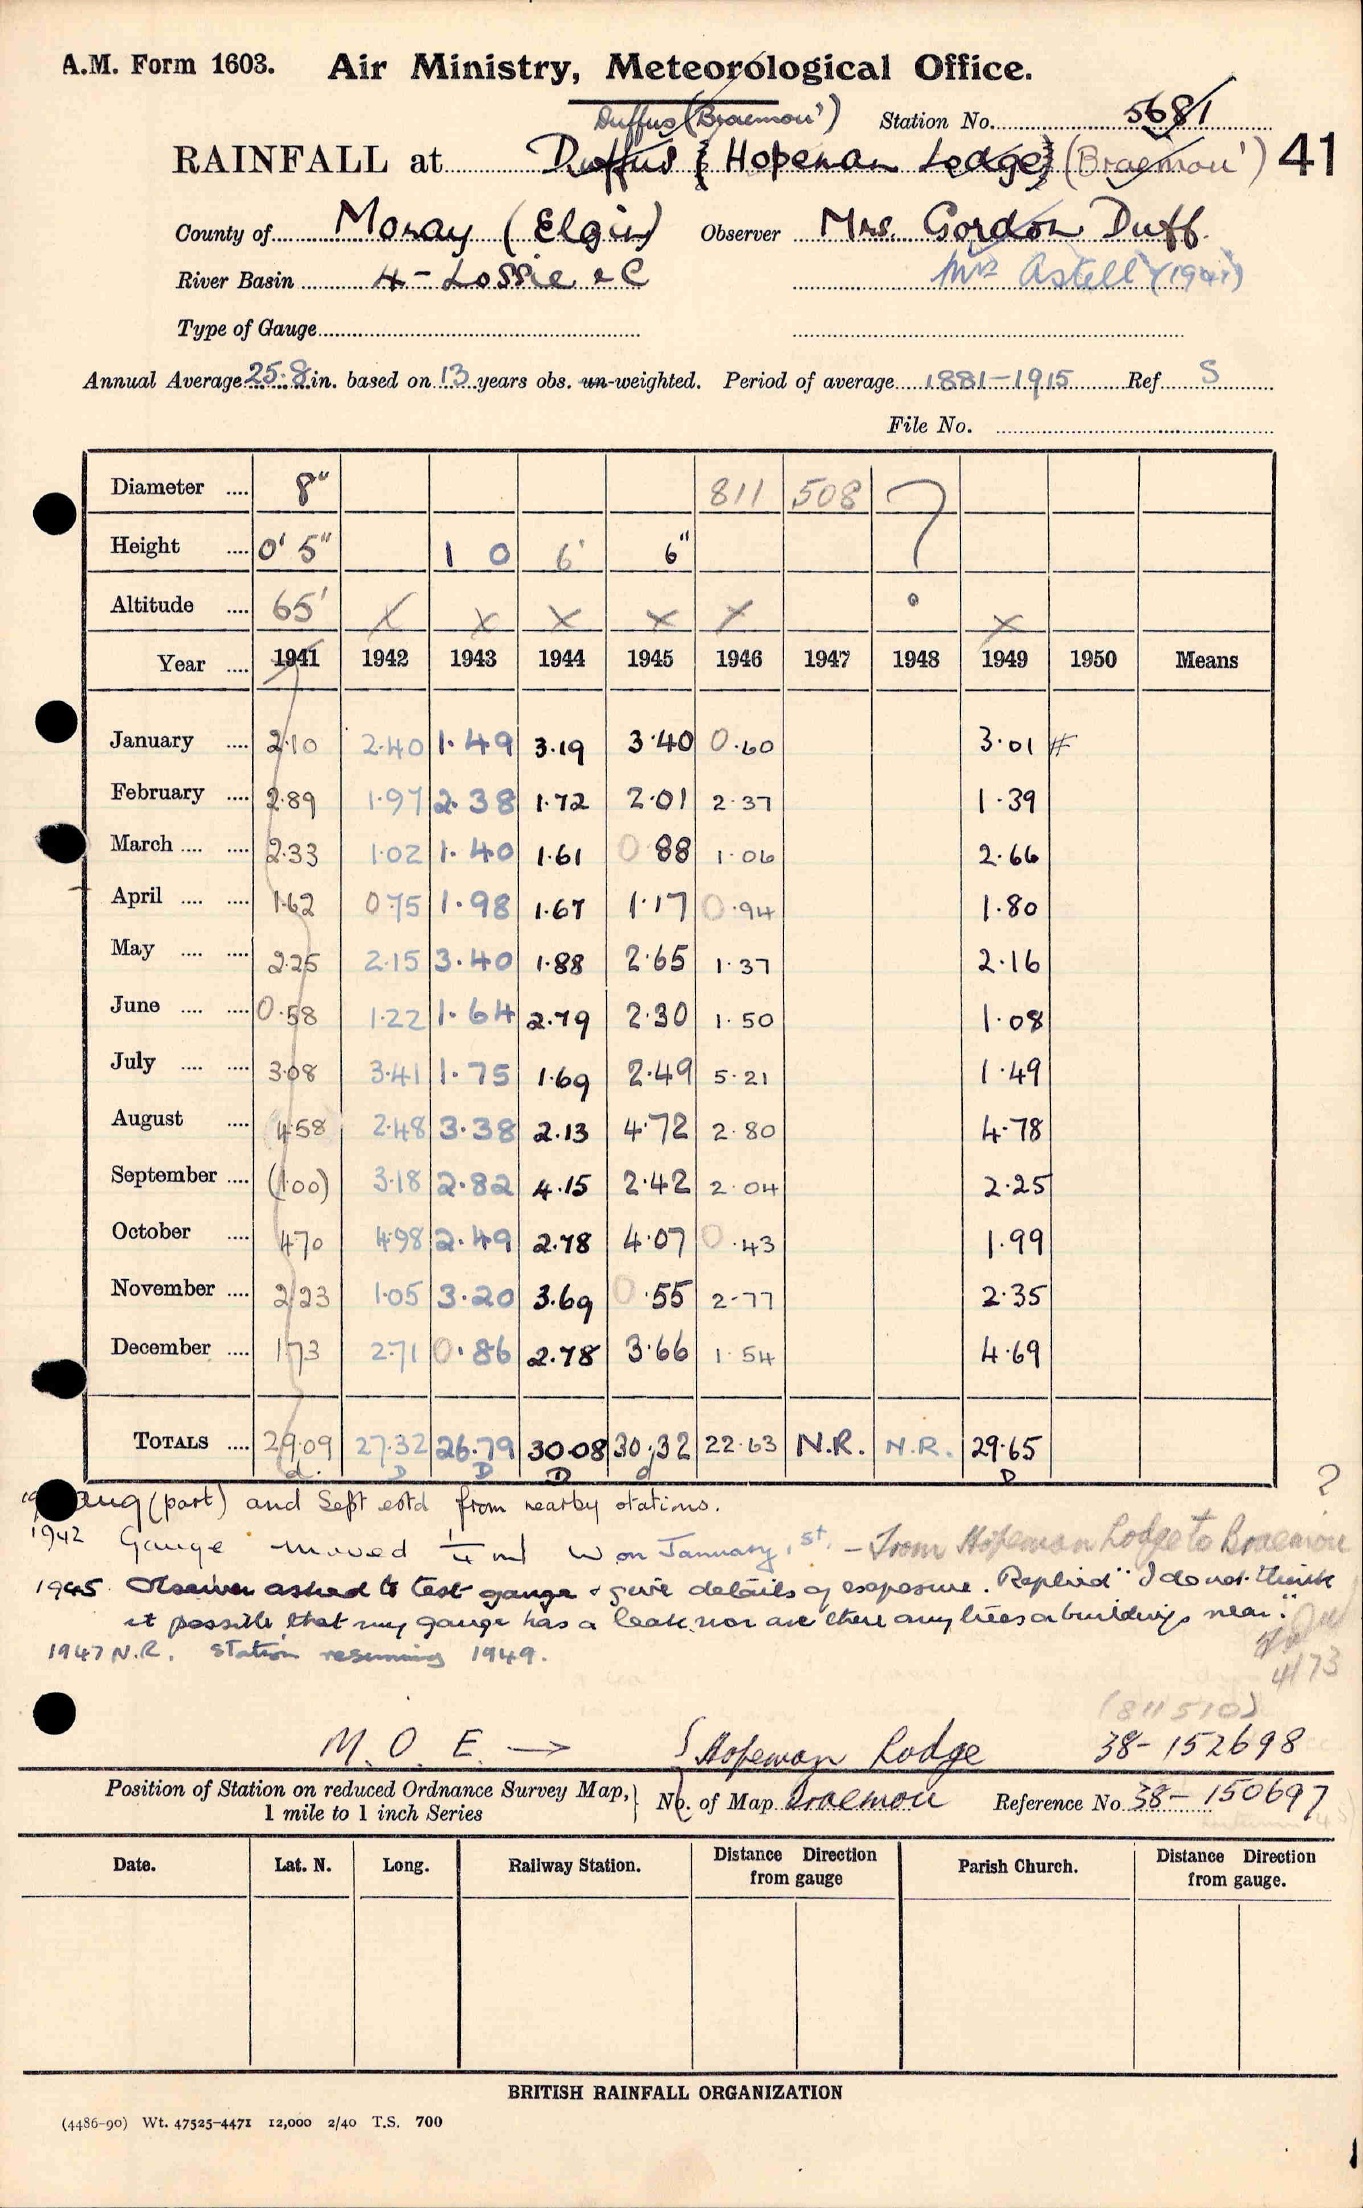 A.M. Form 1603. Air Ministry, Meteorological Office.
Duffus (Braemou') Station No. 5681
RAINFALL at Duffus { Hopeman Lodge } (Braemou') 41
County of Moray (Elgin) Observer Mrs. Gordon Duff.
River Basin 4 - Lossie &C Mrs Astell (1941)
Type of Gauge
Annual Average 25.8 in. based on 13 years obs. un-weighted. Period of average 1881-1915 Ref S
File No.
Diameter .... 8" 811 508 ?
Height .... 0' 5" 1 0 6' 6"
Altitude .... 65' X X X X X X
Year .... 1941 1942 1943 1944 1945 1946 1947 1948 1949 1950 Means
January .... 2.10 2.40 1.49 3.19 3.40 0.60 3.01 #
February .... 2.89 1.97 2.38 1.72 2.01 2.37 1.39
March .... .... 2.33 1.02 1.40 1.61 0.88 1.06 2.66
April .... .... 1.62 0.75 1.98 1.67 1.17 0.94 1.80
May .... .... 2.25 2.15 3.40 1.88 2.65 1.37 2.16
June .... .... 0.58 1.22 1.64 2.79 2.30 1.50 1.08
July .... .... 3.08 3.41 1.75 1.69 2.49 5.21 1.49
August .... 4.58 2.48 3.38 2.13 4.72 2.80 4.78
September .... (1.00) 3.18 2.82 4.15 2.42 2.04 2.25
October .... 4.70 4.98 2.49 2.78 4.07 0.43 1.99
November .... 2.23 1.05 3.20 3.69 0.55 2.77 2.35
December .... 1.73 2.71 0.86 2.78 3.66 1.54 4.69
TOTALS .... 29.09 27.32 26.79 30.08 30.32 22.63 N.R. N.R. 29.65
d. D D D d D
Aug (part) and Sept estd from nearby stations. ?
1942 Gauge moved 1/4 ml W on January 1st. - From Hopeman Lodge to Braemou
1945 Observer asked to test gauge & give details of exposure. Replied "I do not think
it possible that my gauge has a leak, nor are there any trees or buildings near."
1947 N.R. Station resuming 1949.
4/73
(811510)
M. O. E. → { Hopeman Lodge 38-152698
Position of Station on reduced Ordnance Survey Map, 1 mile to 1 inch Series } No. of Map Braemou Reference No. 38-150697
Date. Lat. N. Long. Railway Station. Distance Direction from gauge Parish Church. Distance Direction from gauge.
BRITISH RAINFALL ORGANIZATION
(4486-90) Wt. 47525-4471 12,000 2/40 T.S. 700